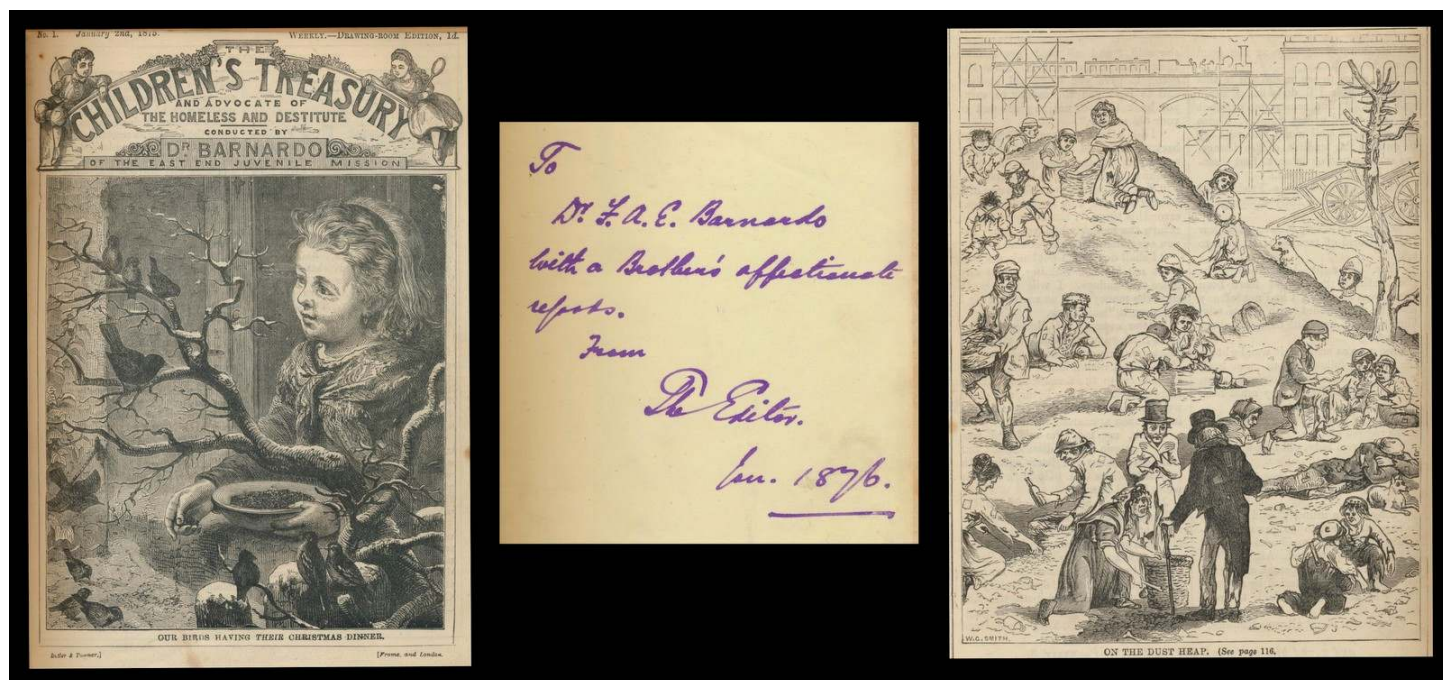 No. 1. January 2nd, 1875. WEEKLY.—DRAWING-ROOM EDITION, 1d.
THE
CHILDREN'S TREASURY
AND ADVOCATE OF
THE HOMELESS AND DESTITUTE
CONDUCTED BY
DR BARNARDO
OF THE EAST END JUVENILE MISSION
OUR BIRDS HAVING THEIR CHRISTMAS DINNER.
Butler & Tanner,] [Frome, and London.
To
Dr. F. A. E. Barnardo
with a Brother's affectionate
regards.
From
The Editor.
Jan. 1876.
W.G. SMITH.
ON THE DUST HEAP. (See page 116.